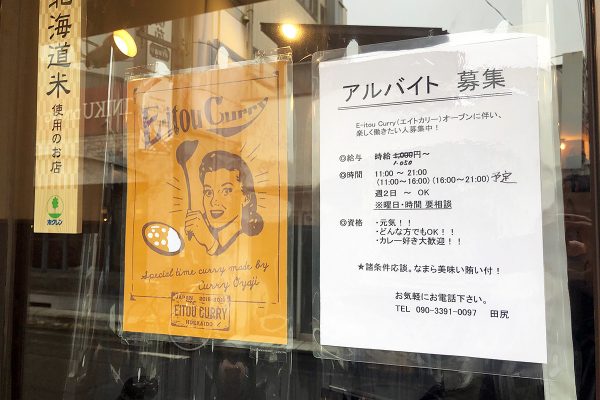 北海道米
使用のお店
ホクレン
E-itou Curry
Special time curry made by
Curry Oyaji
JAPAN
EITOU CURRY
HOKKAIDO
アルバイト 募集
E-itou Curry(エイトカリー)オープンに伴い、
楽しく働きたい人募集中！
◎給与 時給 1,000円～
1.050
◎時間 11:00 ～ 21:00
(11:00～16:00) (16:00～21:00)予定
週2日 ～ OK
※曜日・時間 要相談
◎資格 ・元気！！
・どんな方でもOK！！
・カレー好き大歓迎！！
★諸条件応談。なまら美味い賄い付！
お気軽にお電話下さい。
TEL 090-3391-0097 田尻